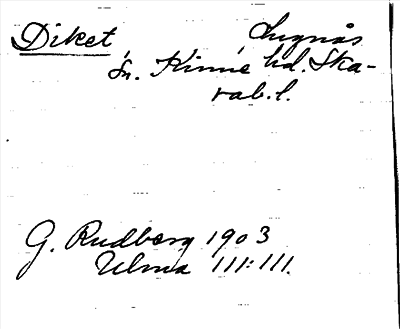 Diket, Lugnås
sn. Kinne hd. Ska-
rab. l.
G. Rudberg 1903
Ulma 111:111.